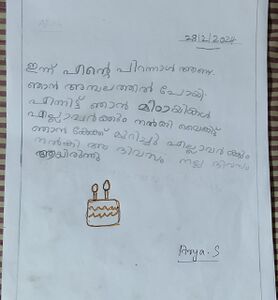 28/2/2024
ഇന്ന് എന്റെ പിറന്നാൾ ആണ്.
ഞാൻ അമ്പലത്തിൽ പോയി.
എന്നിട്ട് ഞാൻ മിഠായികൾ
എല്ലാവർക്കും നൽകി വൈകിട്ട്
ഞാൻ കേക്ക് മുറിച്ചു എല്ലാവർക്കും
നൽകി ആ ദിവസം നല്ല ദിവസം
ആയിരുന്നു
Arya.S